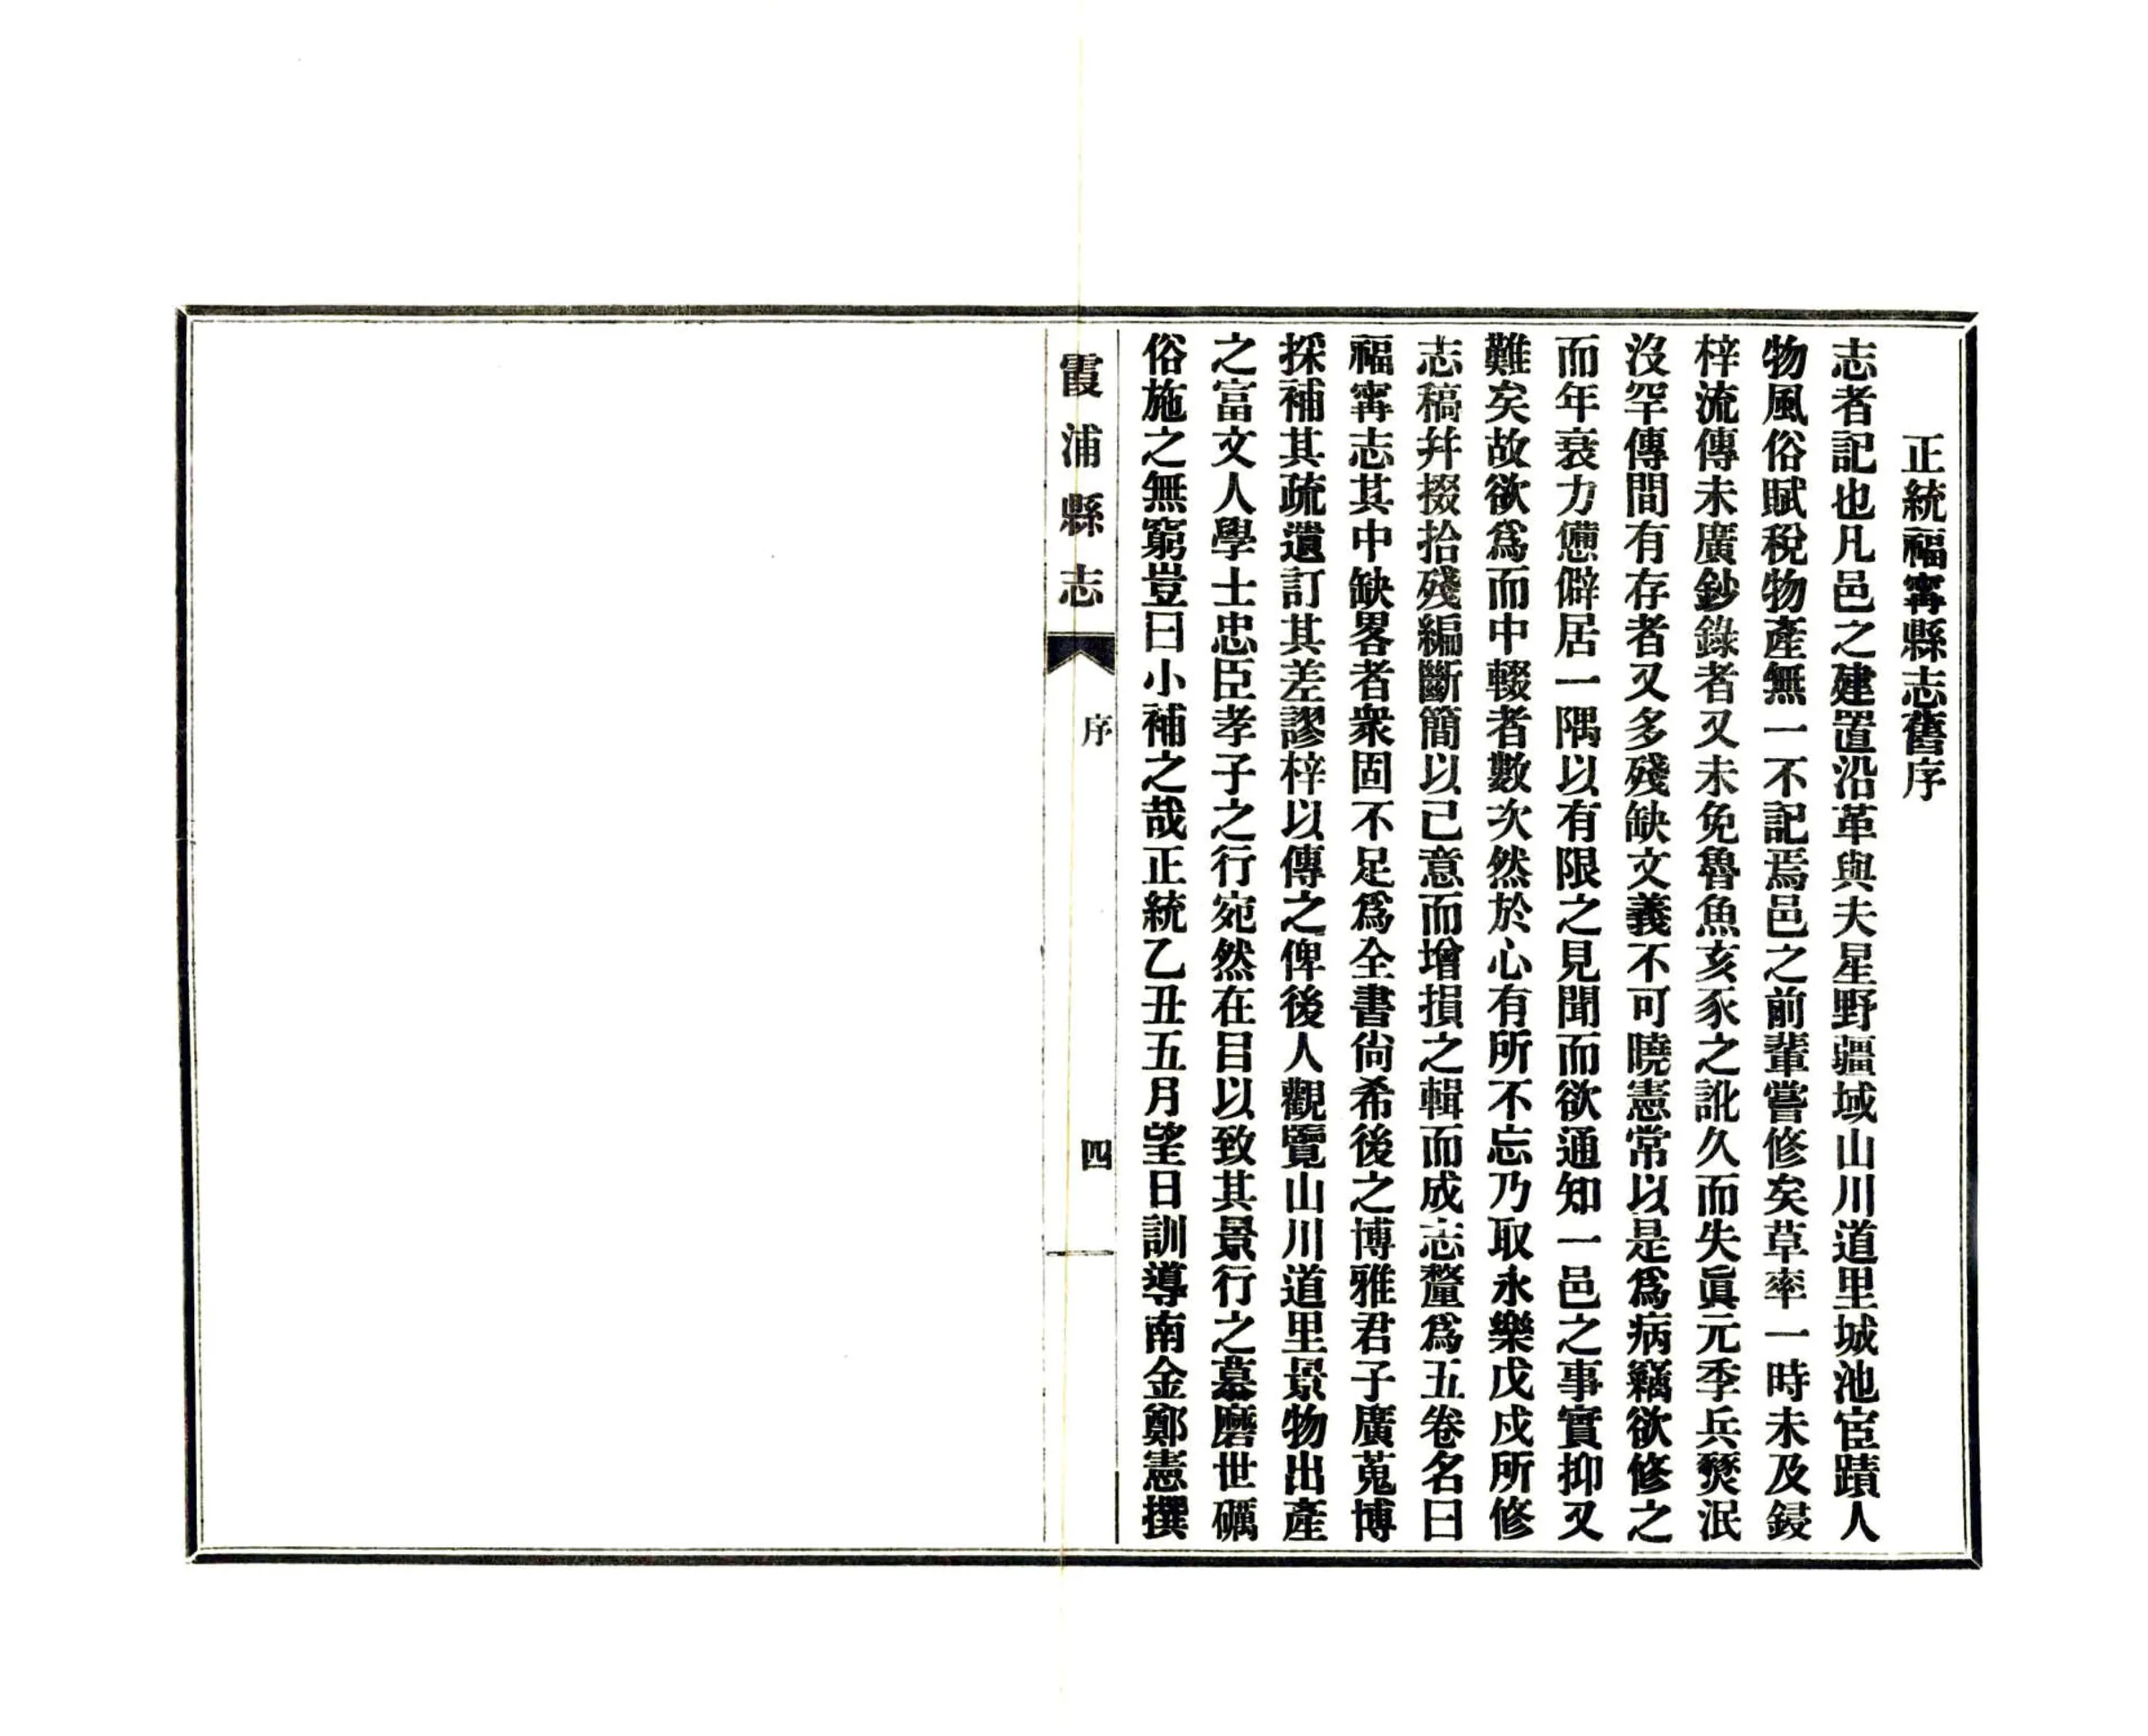 正統福寗縣志舊序
志者記也凡邑之建置沿革與夫星野疆域山川道里城池宦蹟人
物風俗賦稅物產無一不記焉邑之前輩嘗修矣草率一時未及鋟
梓流傳未廣鈔錄者又未免魯魚亥豕之訛久而失眞元季兵燹泯
沒罕傳間有存者又多殘缺文義不可曉憲常以是爲病竊欲修之
而年衰力憊僻居一隅以有限之見聞而欲通知一邑之事實抑又
難矣故欲爲而中輟者數次然於心有所不忘乃取永樂戊戍所修
志稿幷掇拾殘編斷簡以己意而增損之輯而成志釐爲五卷名曰
福寗志其中缺畧者衆固不足爲全書尙希後之博雅君子廣蒐博
採補其疏遺訂其差謬梓以傳之俾後人觀覽山川道里景物出產
之富文人學士忠臣孝子之行宛然在目以致其景行之慕磨世礪
俗施之無窮豈曰小補之哉正統乙丑五月望日訓導南金鄭憲撰
霞浦縣志
序
四